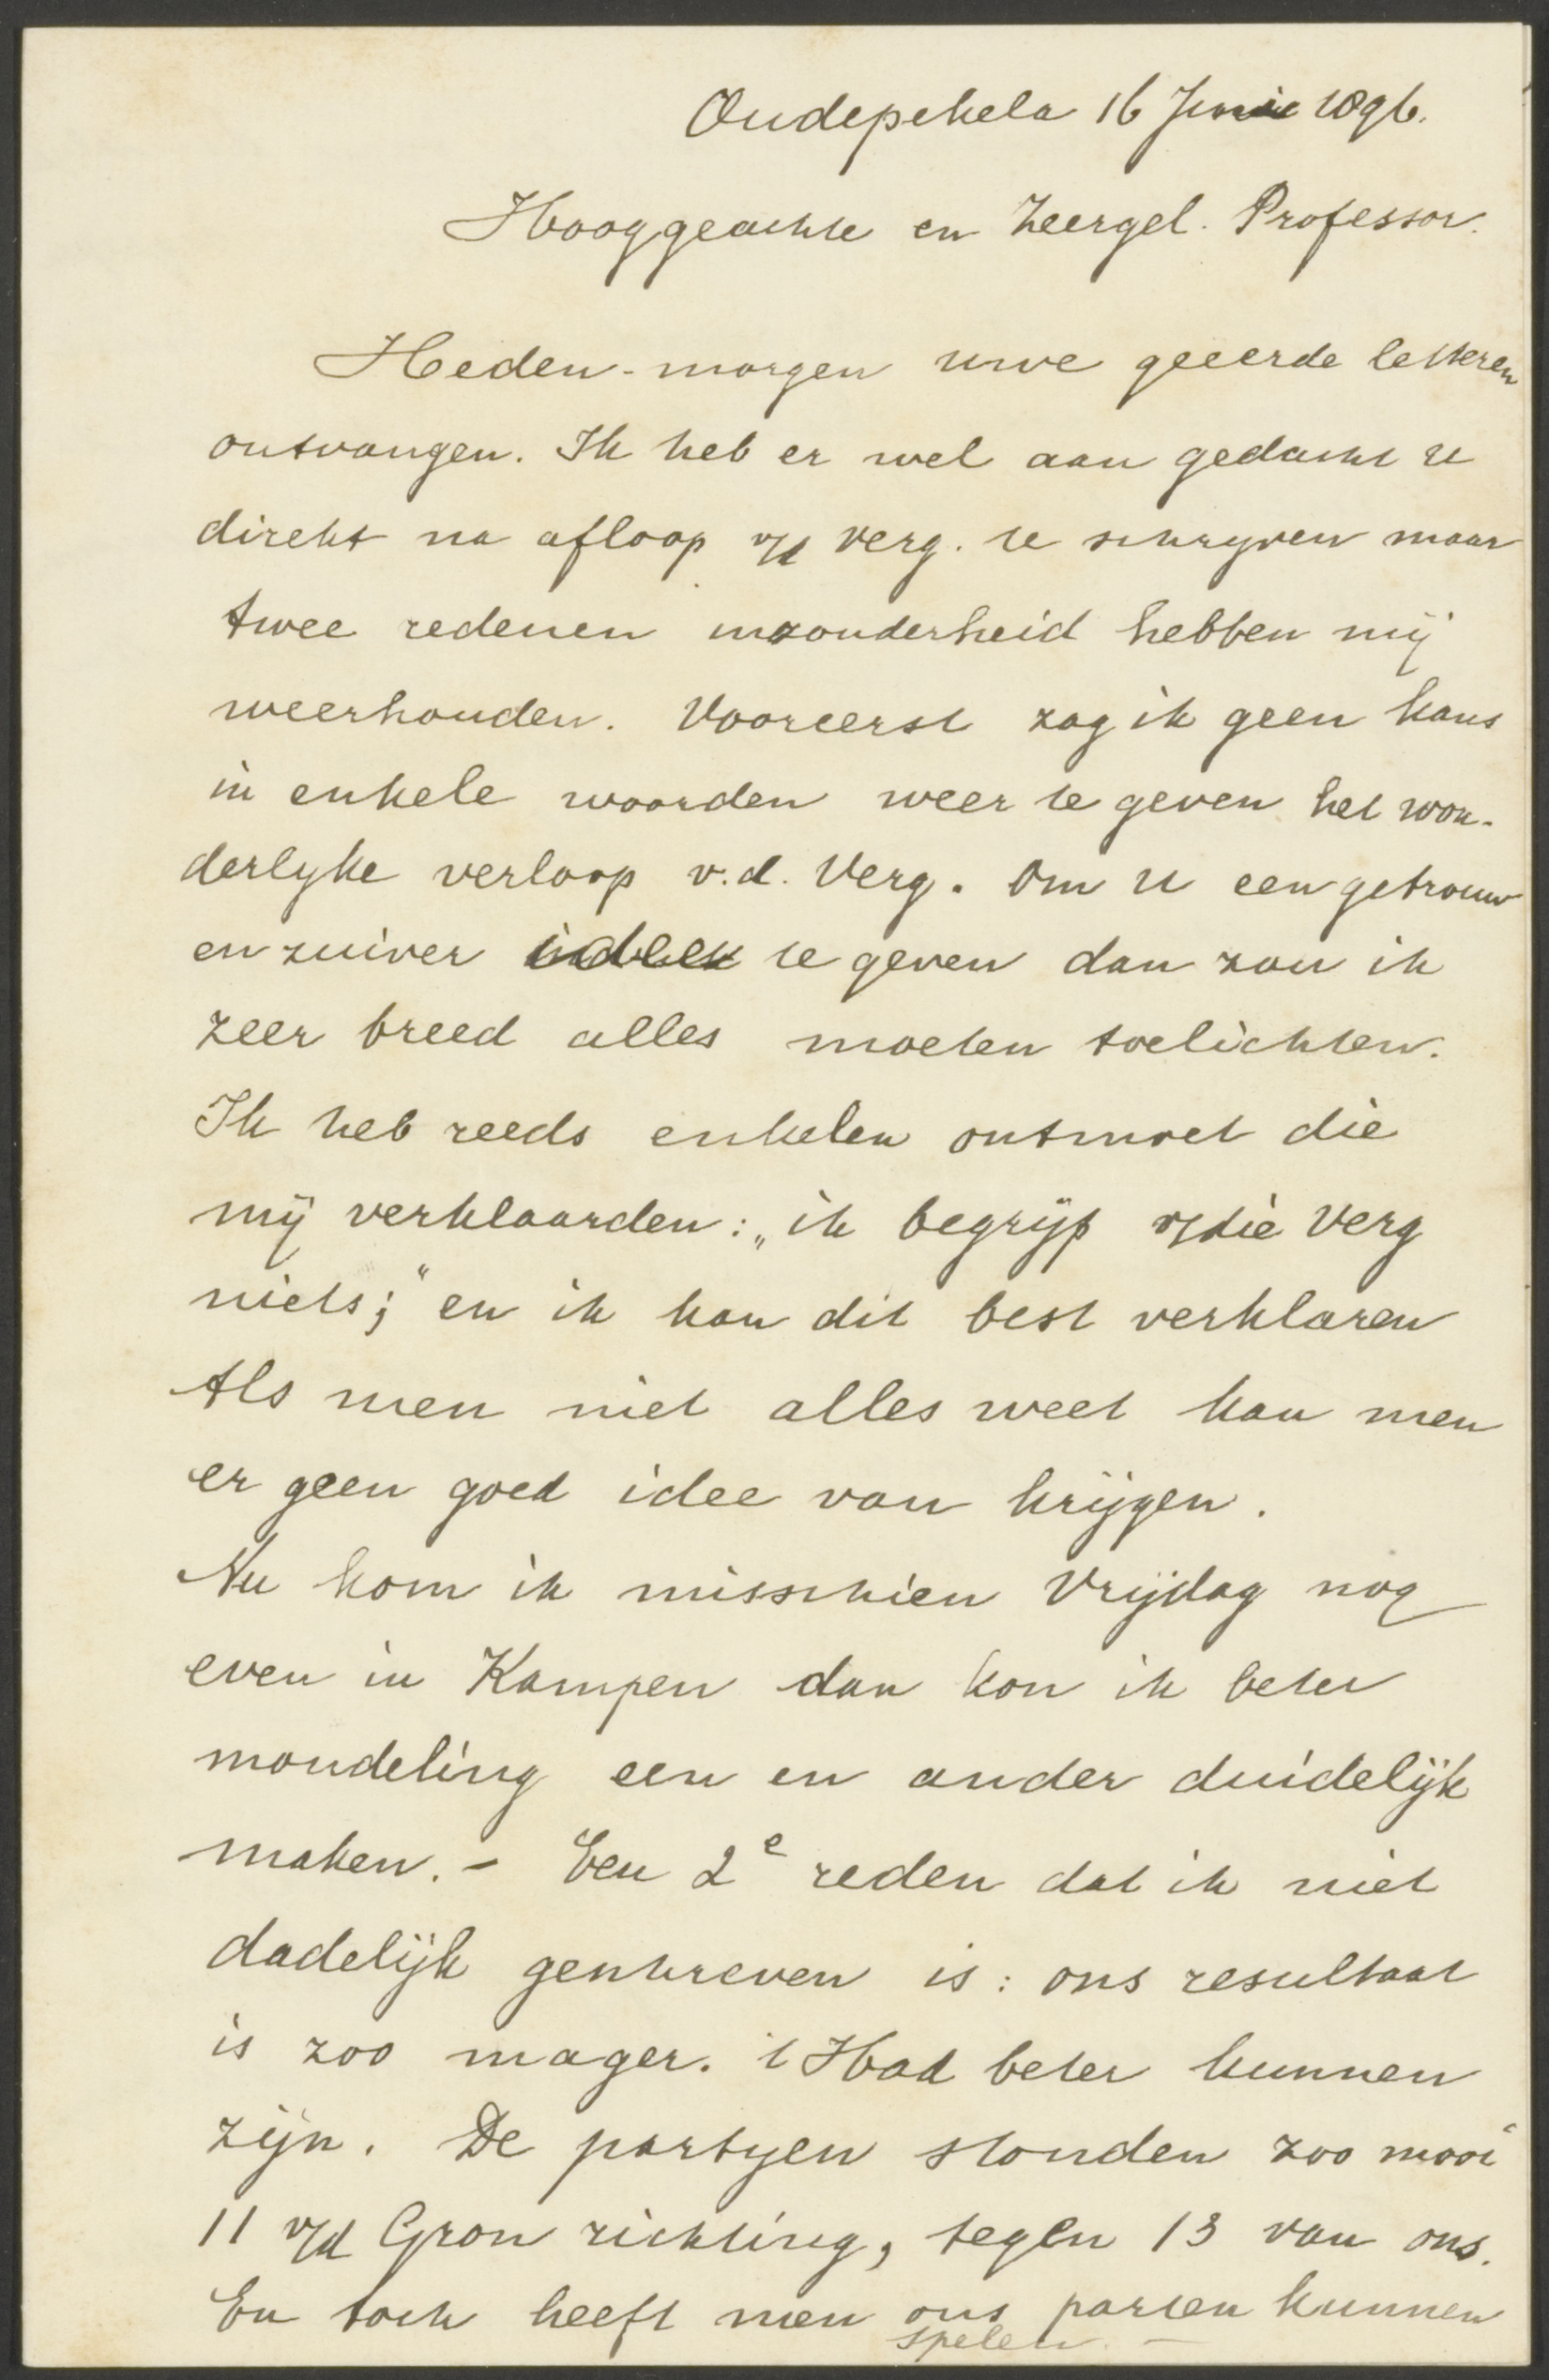 Oudepekela 16 Junie 1896.
Hooggeachte en Zeergel. Professor.
Heden-morgen uwe geeerde letteren
ontvangen. Ik heb er wel aan gedacht u
direkt na afloop v/d verg. te schryven maar
twee redenen inzonderheid hebben mij
weerhouden. Vooreerst zag ik geen kans
in enkele woorden weer te geven het won-
derlyke verloop v.d. Verg. Om u een getrouw
en zuiver te geven dan zou ik
zeer breed alles moeten toelichten.
Ik heb reeds enkelen ontmoet die
mij verklaarden: „ik begrijp v/die Verg
niets;" en ik kan dit best verklaren
Als men niet alles weet kan men
er geen goed idee van krijgen.
Nu kom ik misschien Vrijdag nog
even in Kampen dan kon ik beter
mondeling een en ander duidelijk
maken. - Een 2e reden dat ik niet
dadelijk geschreven is: ons resultaat
is zoo mager. 't Had beter kunnen
zijn. De partyen stonden zoo mooi
11 v/d Gron richting, tegen 13 van ons.
En toch heeft men ons parten kunnen
spelen. -